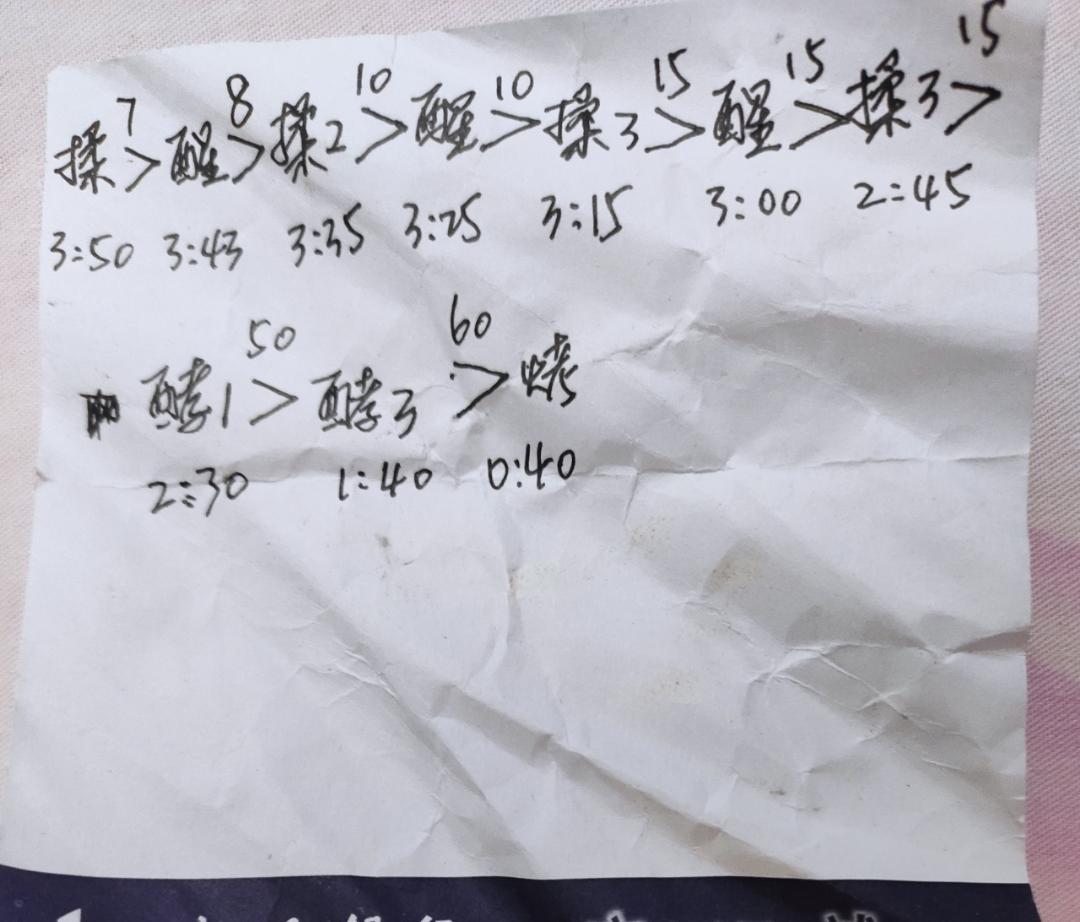 7 8 10 10 15 15 15
揉>醒>揉2>醒>揉3>醒>揉3>
3:50 3:43 3:35 3:25 3:15 3:00 2:45
50 60
酵1>酵3>烤
2:30 1:40 0:40